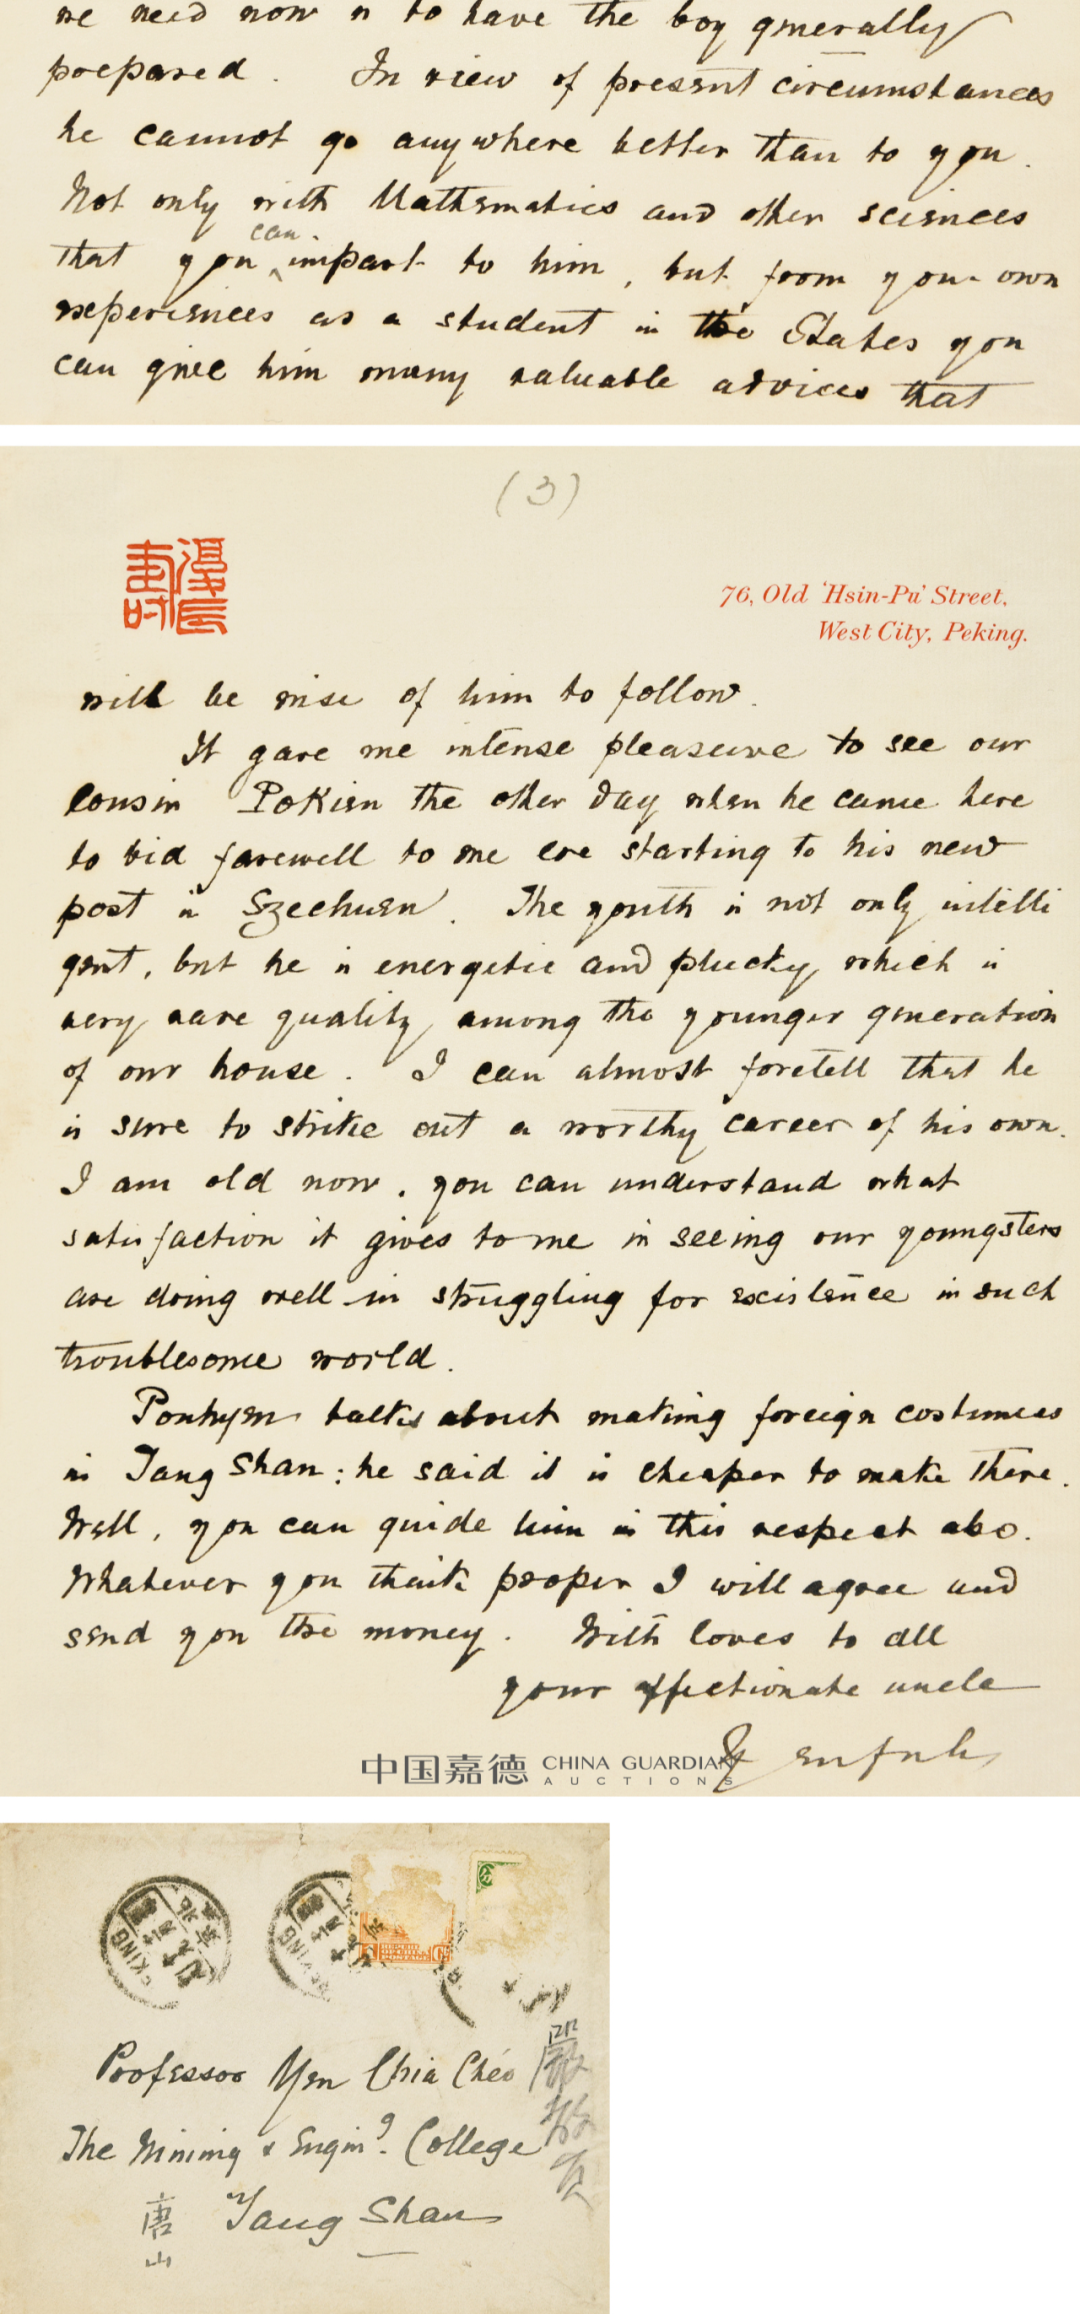 we need now is to have the boy generally
prepared. In view of present circumstances
he cannot go anywhere better than to you.
Not only with Mathematics and other sciences
that you can impart to him, but from your own
experiences as a student in the States you
can give him many valuable advices that
(3)
優長
壽
76, Old 'Hsin-Pu' Street,
West City, Peking.
will be wise of him to follow.
It gave me intense pleasure to see our
cousin PoKien the other day when he came here
to bid farewell to me ere starting to his new
post in Szechuen. The youth is not only intelli
gent, but he is energetic and plucky, which is
very rare quality among the younger generation
of our house. I can almost foretell that he
is sure to strike out a worthy career of his own.
I am old now, you can understand what
satisfaction it gives to me in seeing our youngsters
are doing well in struggling for existence in such
troublesome world.
Ponhyen talks about making foreign costumes
in Tang Shan; he said it is cheaper to make there.
Well, you can guide him in this respect also.
Whatever you think proper I will agree and
send you the money. With loves to all
your affectionate uncle
Yenfuh
中国嘉德 CHINA GUARDIAN
AUCTIONS
Professor Yen Chia Cheo
The Mining & Engin'g. College
唐山 Tang Shan